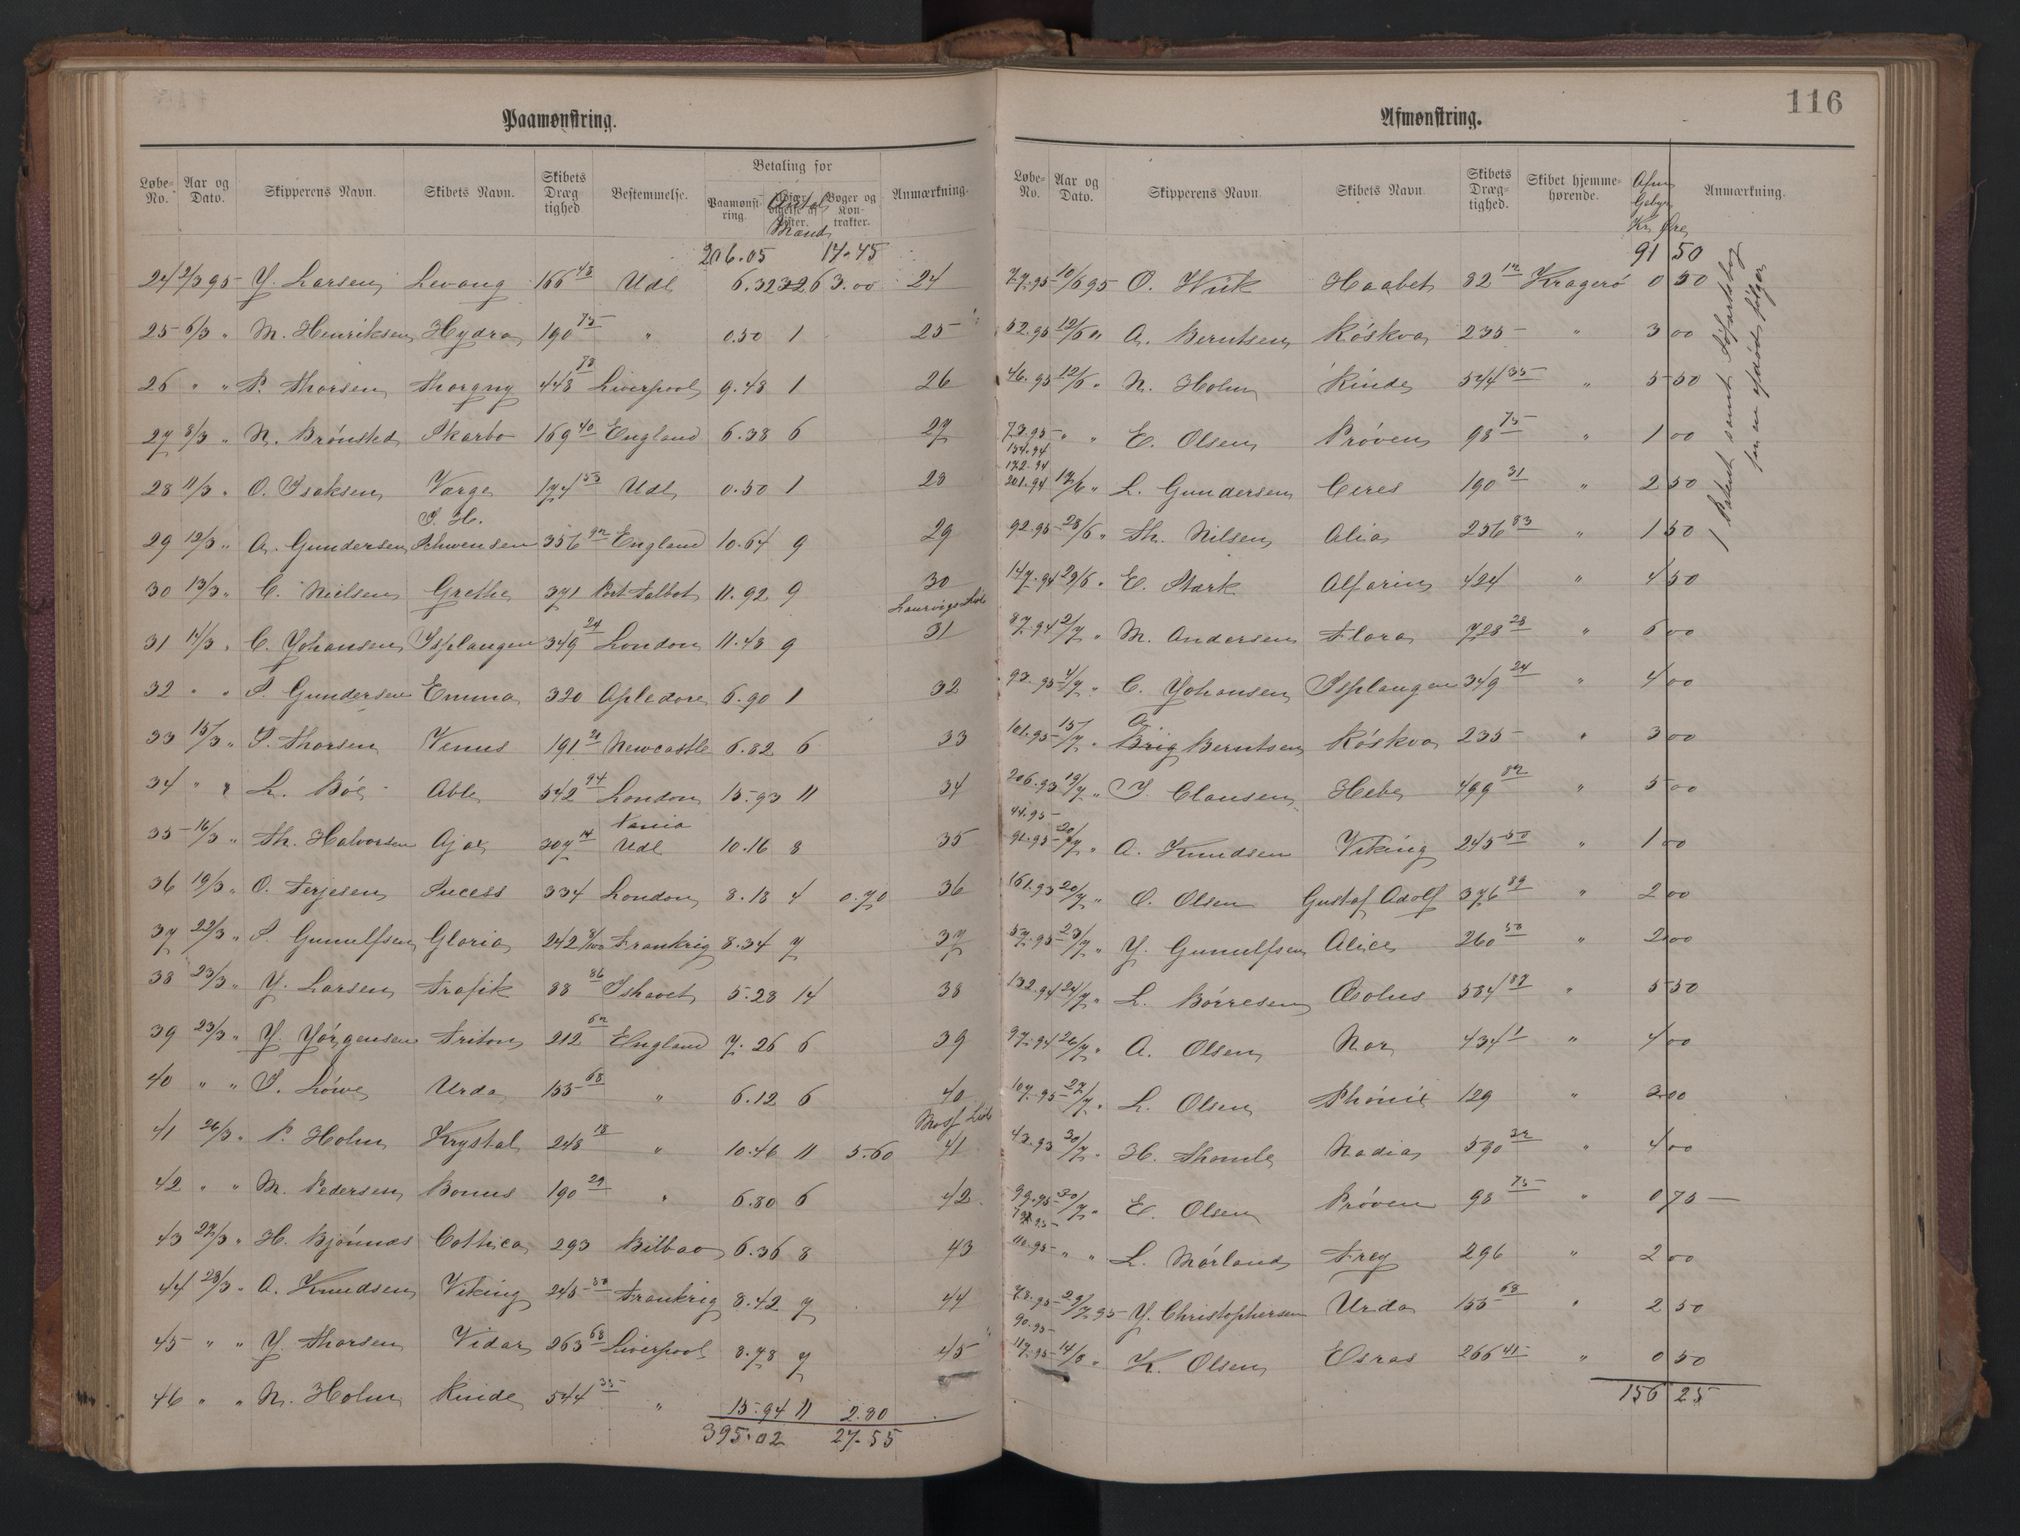 Paamønstring.
Løbe-No. Aar og Dato. Skipperens Navn. Skibets Navn. Skibets Drægtighed Bestemmelse. Betaling for Paamønstring. Antal Mand Bøger og Kontrakter. Anmærkning.
206.05 17.45
24 2/3 95 Y. Larsen Levang 166 48 Udl 6.32 6 3.00 24
25 6/3 " M. Henriksen Hydra 190 75 " 0.50 1 25
26 " " P. Thorsen Thorgny 448 78 Liverpool 9.48 1 26
27 8/3 " N. Brønsted Skarbo 169 40 England 6.38 6 27
28 11/3 " O. Isaksen Varge 174 53 Udl 0.50 1 28
S. H.
29 12/3 " A. Gundersen Schwensen 356 92 England 10.64 9 29
30 13/3 " C. Nielsen Grethe 371 Port Talbot 11.92 9 30
Laurvigs Liste
31 14/3 " C. Johansen Isplangen 349 24 London 11.48 9 31
32 " " S. Gundersen Emma 320 Apledore 6.90 1 32
33 15/3 " S. Thorsen Venus 191 21 Newcastle 6.82 6 33
34 " " L. Böe Able 542 94 London 15.93 11 34
35 16/3 " Th. Halvorsen Ajax 307 14 Udl 10.16 8 35
36 19/3 " O. Terjesen Sucess 334 London 8.18 4 0.70 36
37 22/3 " S. Gunulfsen Gloria 242 8/100 Frankrig 8.34 7 37
38 23/3 " Y. Larsen Trafik 88 86 Ishavet 5.28 14 38
39 23/3 " Y. Jörgensen Triton 212 62 England 7.26 6 39
40 " " S. Löwe Urda 155 68 " 6.12 6 40
Mosf Liste
41 26/3 " P. Holm Krystal 248 18 " 10.46 11 5.60 41
42 " " M. Pedersen Bonus 190 29 " 6.80 6 42
43 27/3 " H. Bjönnæs Cottica 293 Bilbao 6.36 8 43
44 28/3 " A. Knudsen Viking 245 50 Frankrig 8.42 7 44
45 " " Y. Thorsen Vidar 263 68 Liverpool 8.78 7 45
46 " " N. Holm Rinde 544 35 " 15.94 11 2.80
395.02 27.55
116
Afmønstring.
Løbe-No. Aar og Dato. Skipperens Navn. Skibets Navn. Skibets Drægtighed. Skibet hjemmehørende. Kr. Øre Anmærkning.
91 50
77.95 10/6 95 O. Wiik Haabet 82 12 Kragerö 0 50
52.95 12/6 " A. Berntsen Röskva 235 " 3 00
46.95 12/6 " N. Holm Rinde 544 35 " 5 50
73.95 " " E. Olsen Pröven 98 75 " 1 00
134.94
172.94
201.94 17/6 " L. Gundersen Ceres 190 31 " 2 50
92.95 28/6 " Th. Nilsen Alia 256 83 " 1 50
147.94 29/6 " E. Stark Alfarin 424 " 4 50
87.94 2/7 " M. Andersen Flora 728 28 " 6 00
93.95 4/7 " C. Johansen Isplangen 349 24 " 4 00
101.95 15/7 " A. Berntsen Röskva 235 " 3 00
206.93 19/7 " S. Clausen Hebe 499 82 " 5 00
44.95
91.95 20/7 " A. Knudsen Viking 245 50 " 1 00
161.93 20/7 " O. Olsen Gustaf Adolf 376 89 " 2 00
57.95 23/7 " Y. Gunulfsen Alice 260 50 " 2 00
132.94 24/7 " L. Börresen Æolus 584 87 " 5 50
97.94 26/7 " A. Olsen Nor 434 1 " 4 00
107.95 27/7 " L. Olsen Phönix 129 " 3 00
43.93 30/7 " H. Thomle Nadia 590 32 " 4 00
99.95 30/7 " E. Olsen Pröven 98 75 " 0 75
110.95 " " L. Mørland Frey 296 " 2 00
78.95 29/7 95 Y. Christophersen Urda 155 68 " 2 50
90.95
117.95 14/8 " K. Olsen Esras 266 41 " 0 50
156 25
1 Patent samt Söfartsbog